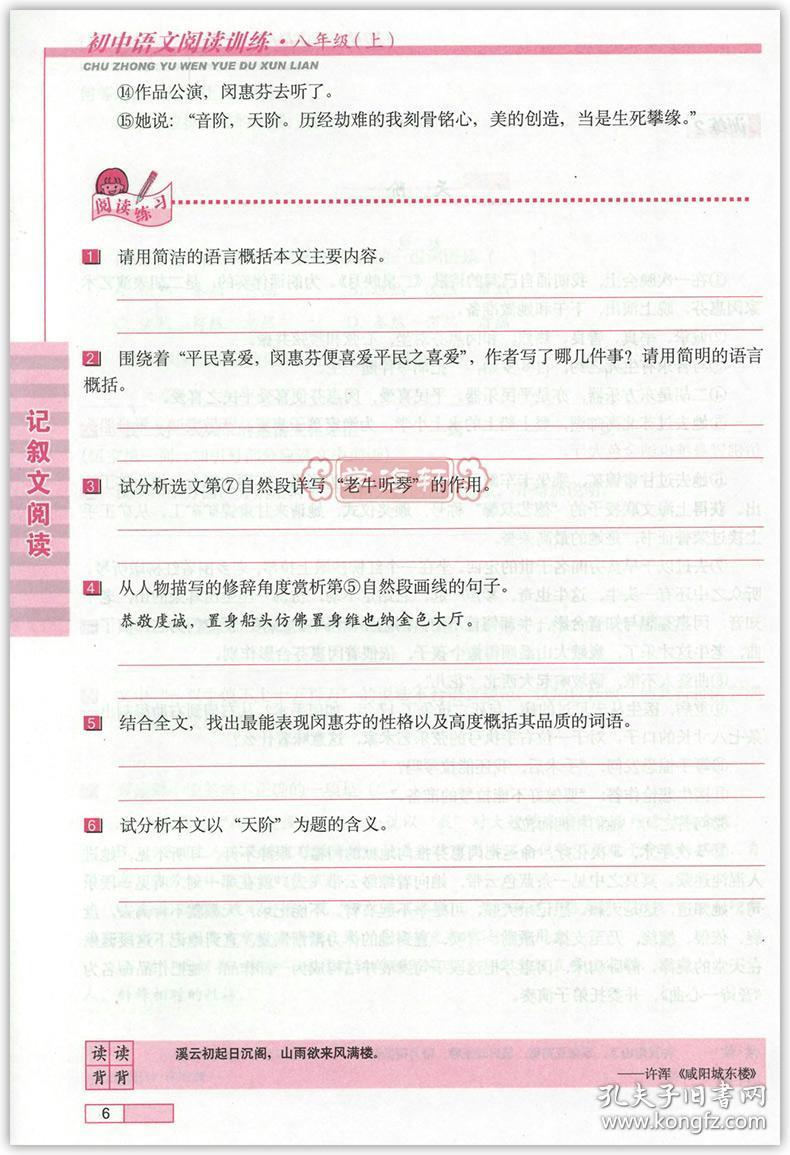 初中语文阅读训练·八年级(上)
CHU ZHONG YU WEN YUE DU XUN LIAN
⑭作品公演，闵惠芬去听了。
⑮她说：“音阶，天阶。历经劫难的我刻骨铭心，美的创造，当是生死攀缘。”
阅读练习
1 请用简洁的语言概括本文主要内容。
2 围绕着“平民喜爱，闵惠芬便喜爱平民之喜爱”，作者写了哪几件事？请用简明的语言
概括。
学海轩
3 试分析选文第⑦自然段详写“老牛听琴”的作用。
4 从人物描写的修辞角度赏析第⑤自然段画线的句子。
恭敬虔诚，置身船头仿佛置身维也纳金色大厅。
5 结合全文，找出最能表现闵惠芬的性格以及高度概括其品质的词语。
6 试分析本文以“天阶”为题的含义。
记叙文阅读
读读
背背
溪云初起日沉阁，山雨欲来风满楼。
——许浑《咸阳城东楼》
6
孔夫子旧书网
kongfz.com